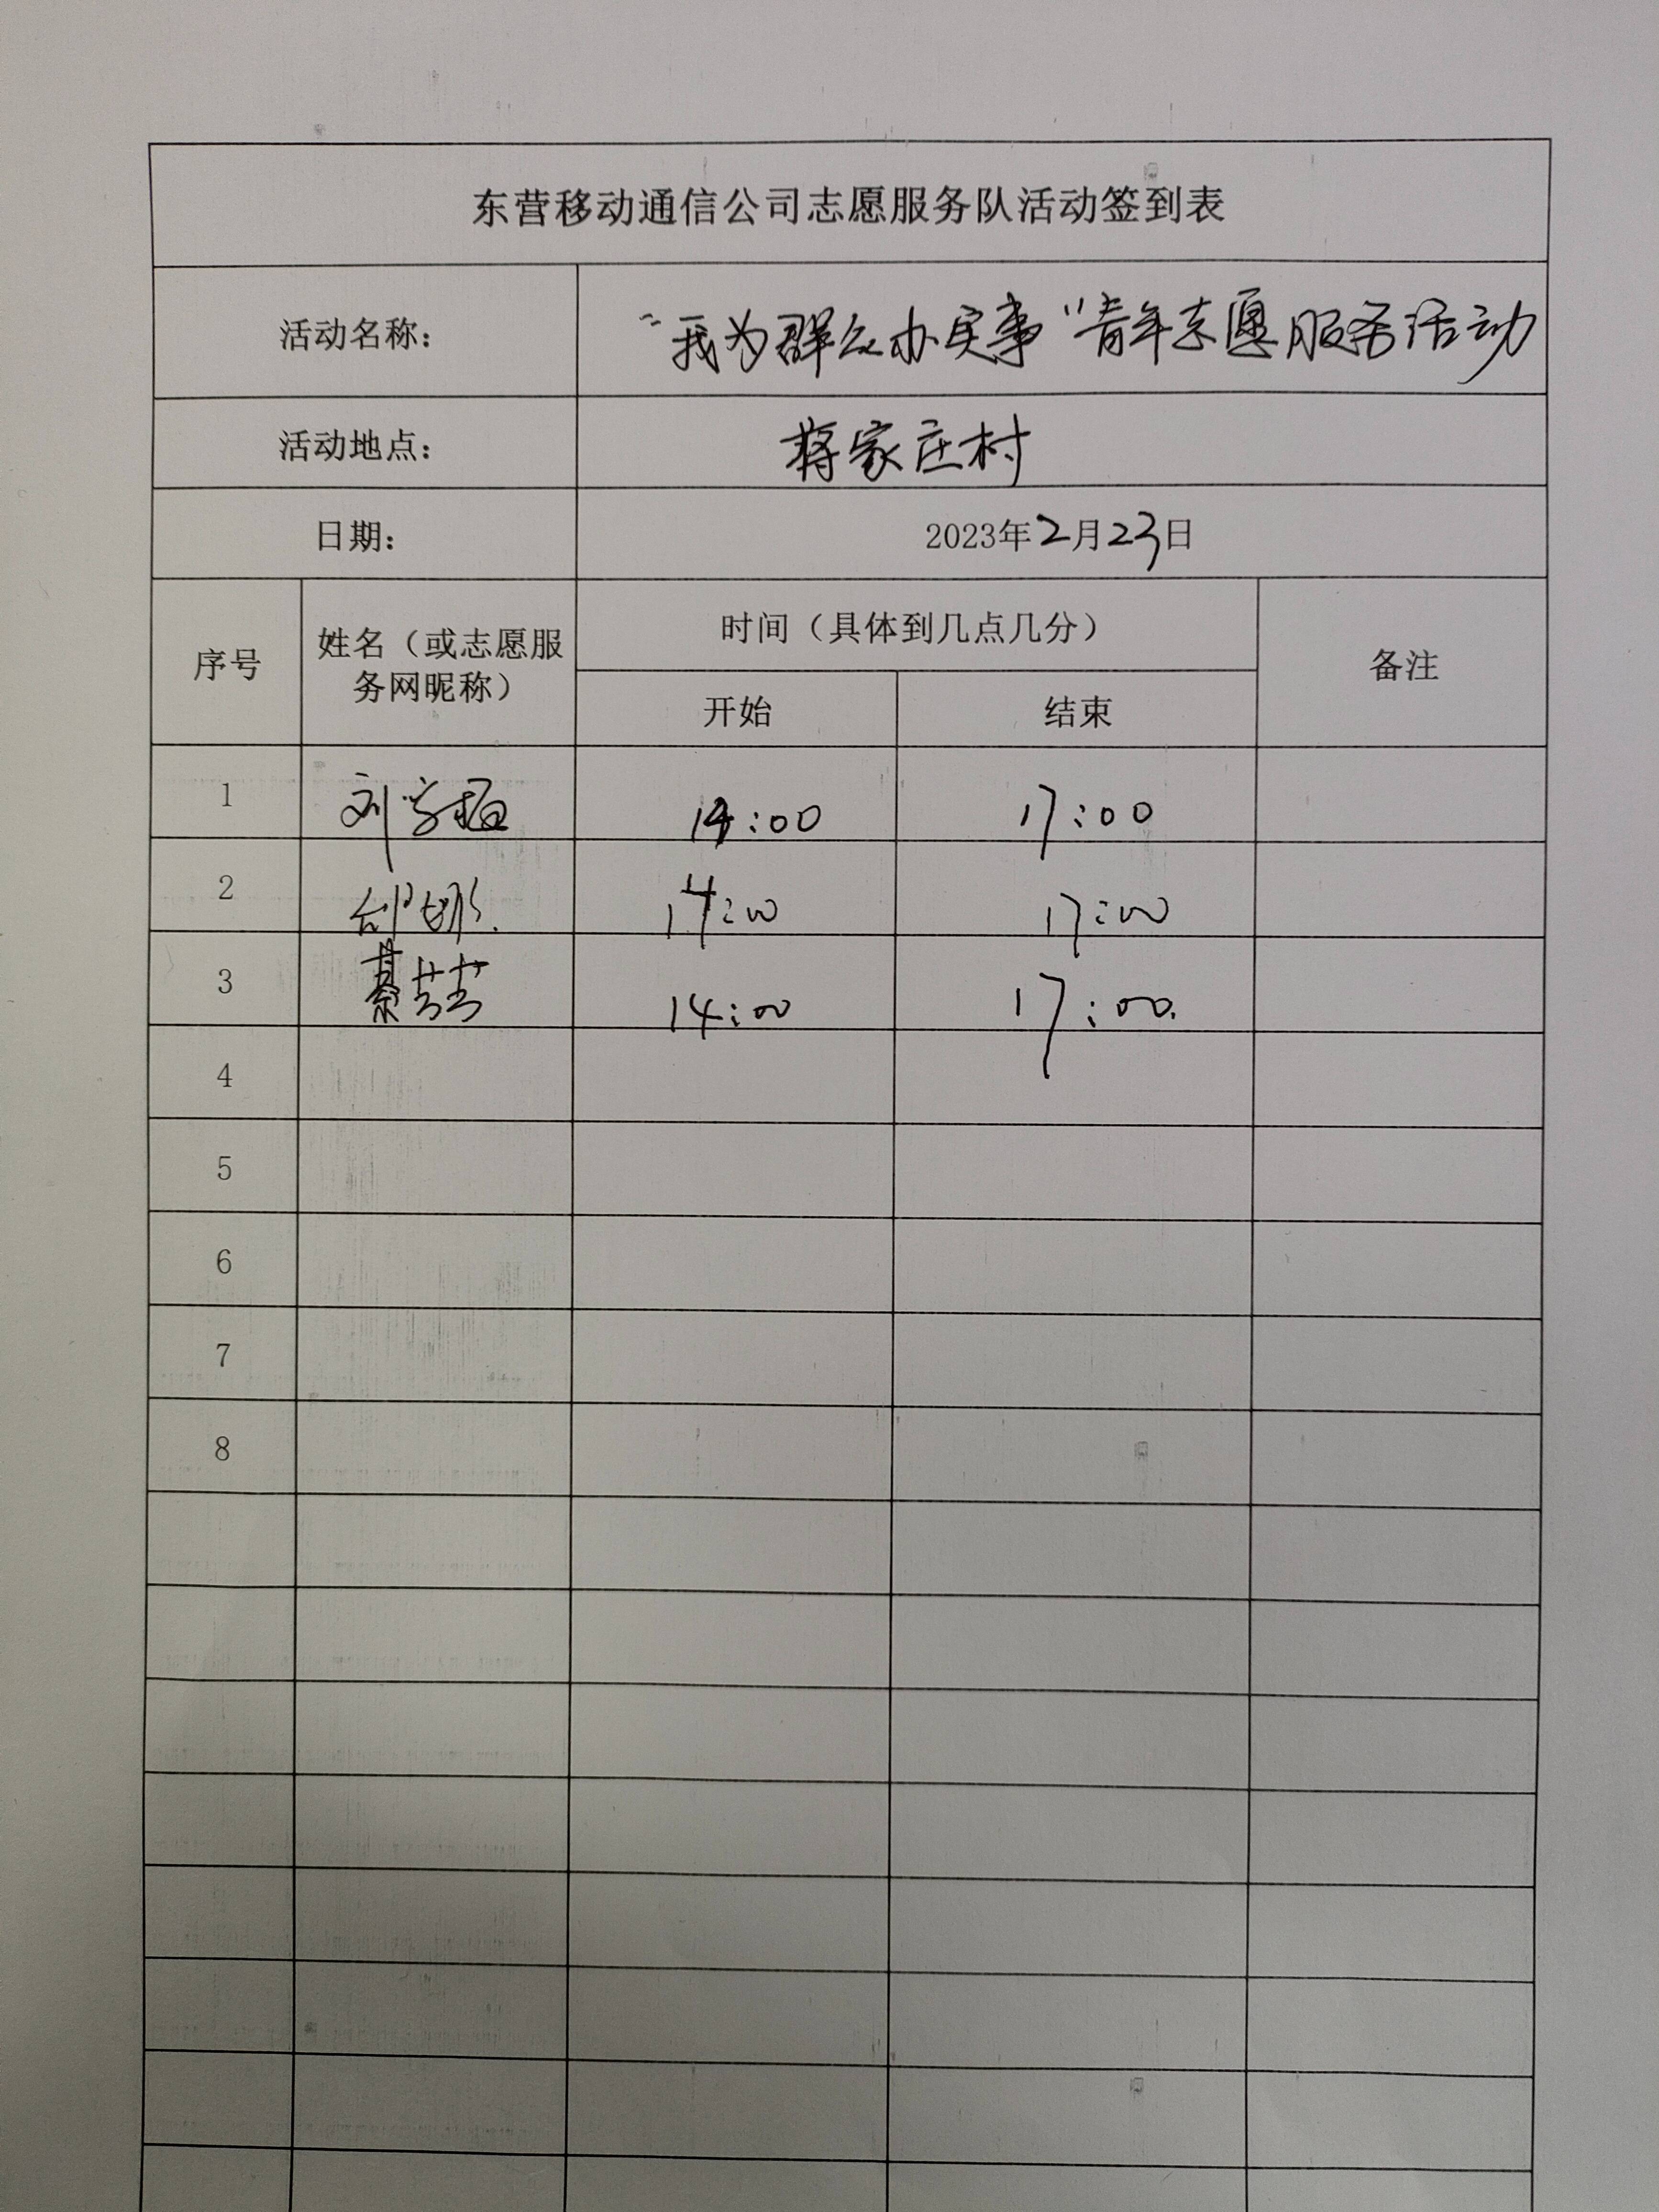 东营移动通信公司志愿服务队活动签到表
活动名称： “我为群众办实事”青年志愿服务活动
活动地点： 蒋家庄村
日期： 2023年2月23日
序号 姓名（或志愿服务网昵称） 时间（具体到几点几分） 备注
开始 结束
1 刘学 14:00 17:00
2 14:00 17:00
3 綦芸芸 14:00 17:00.
4
5
6
7
8